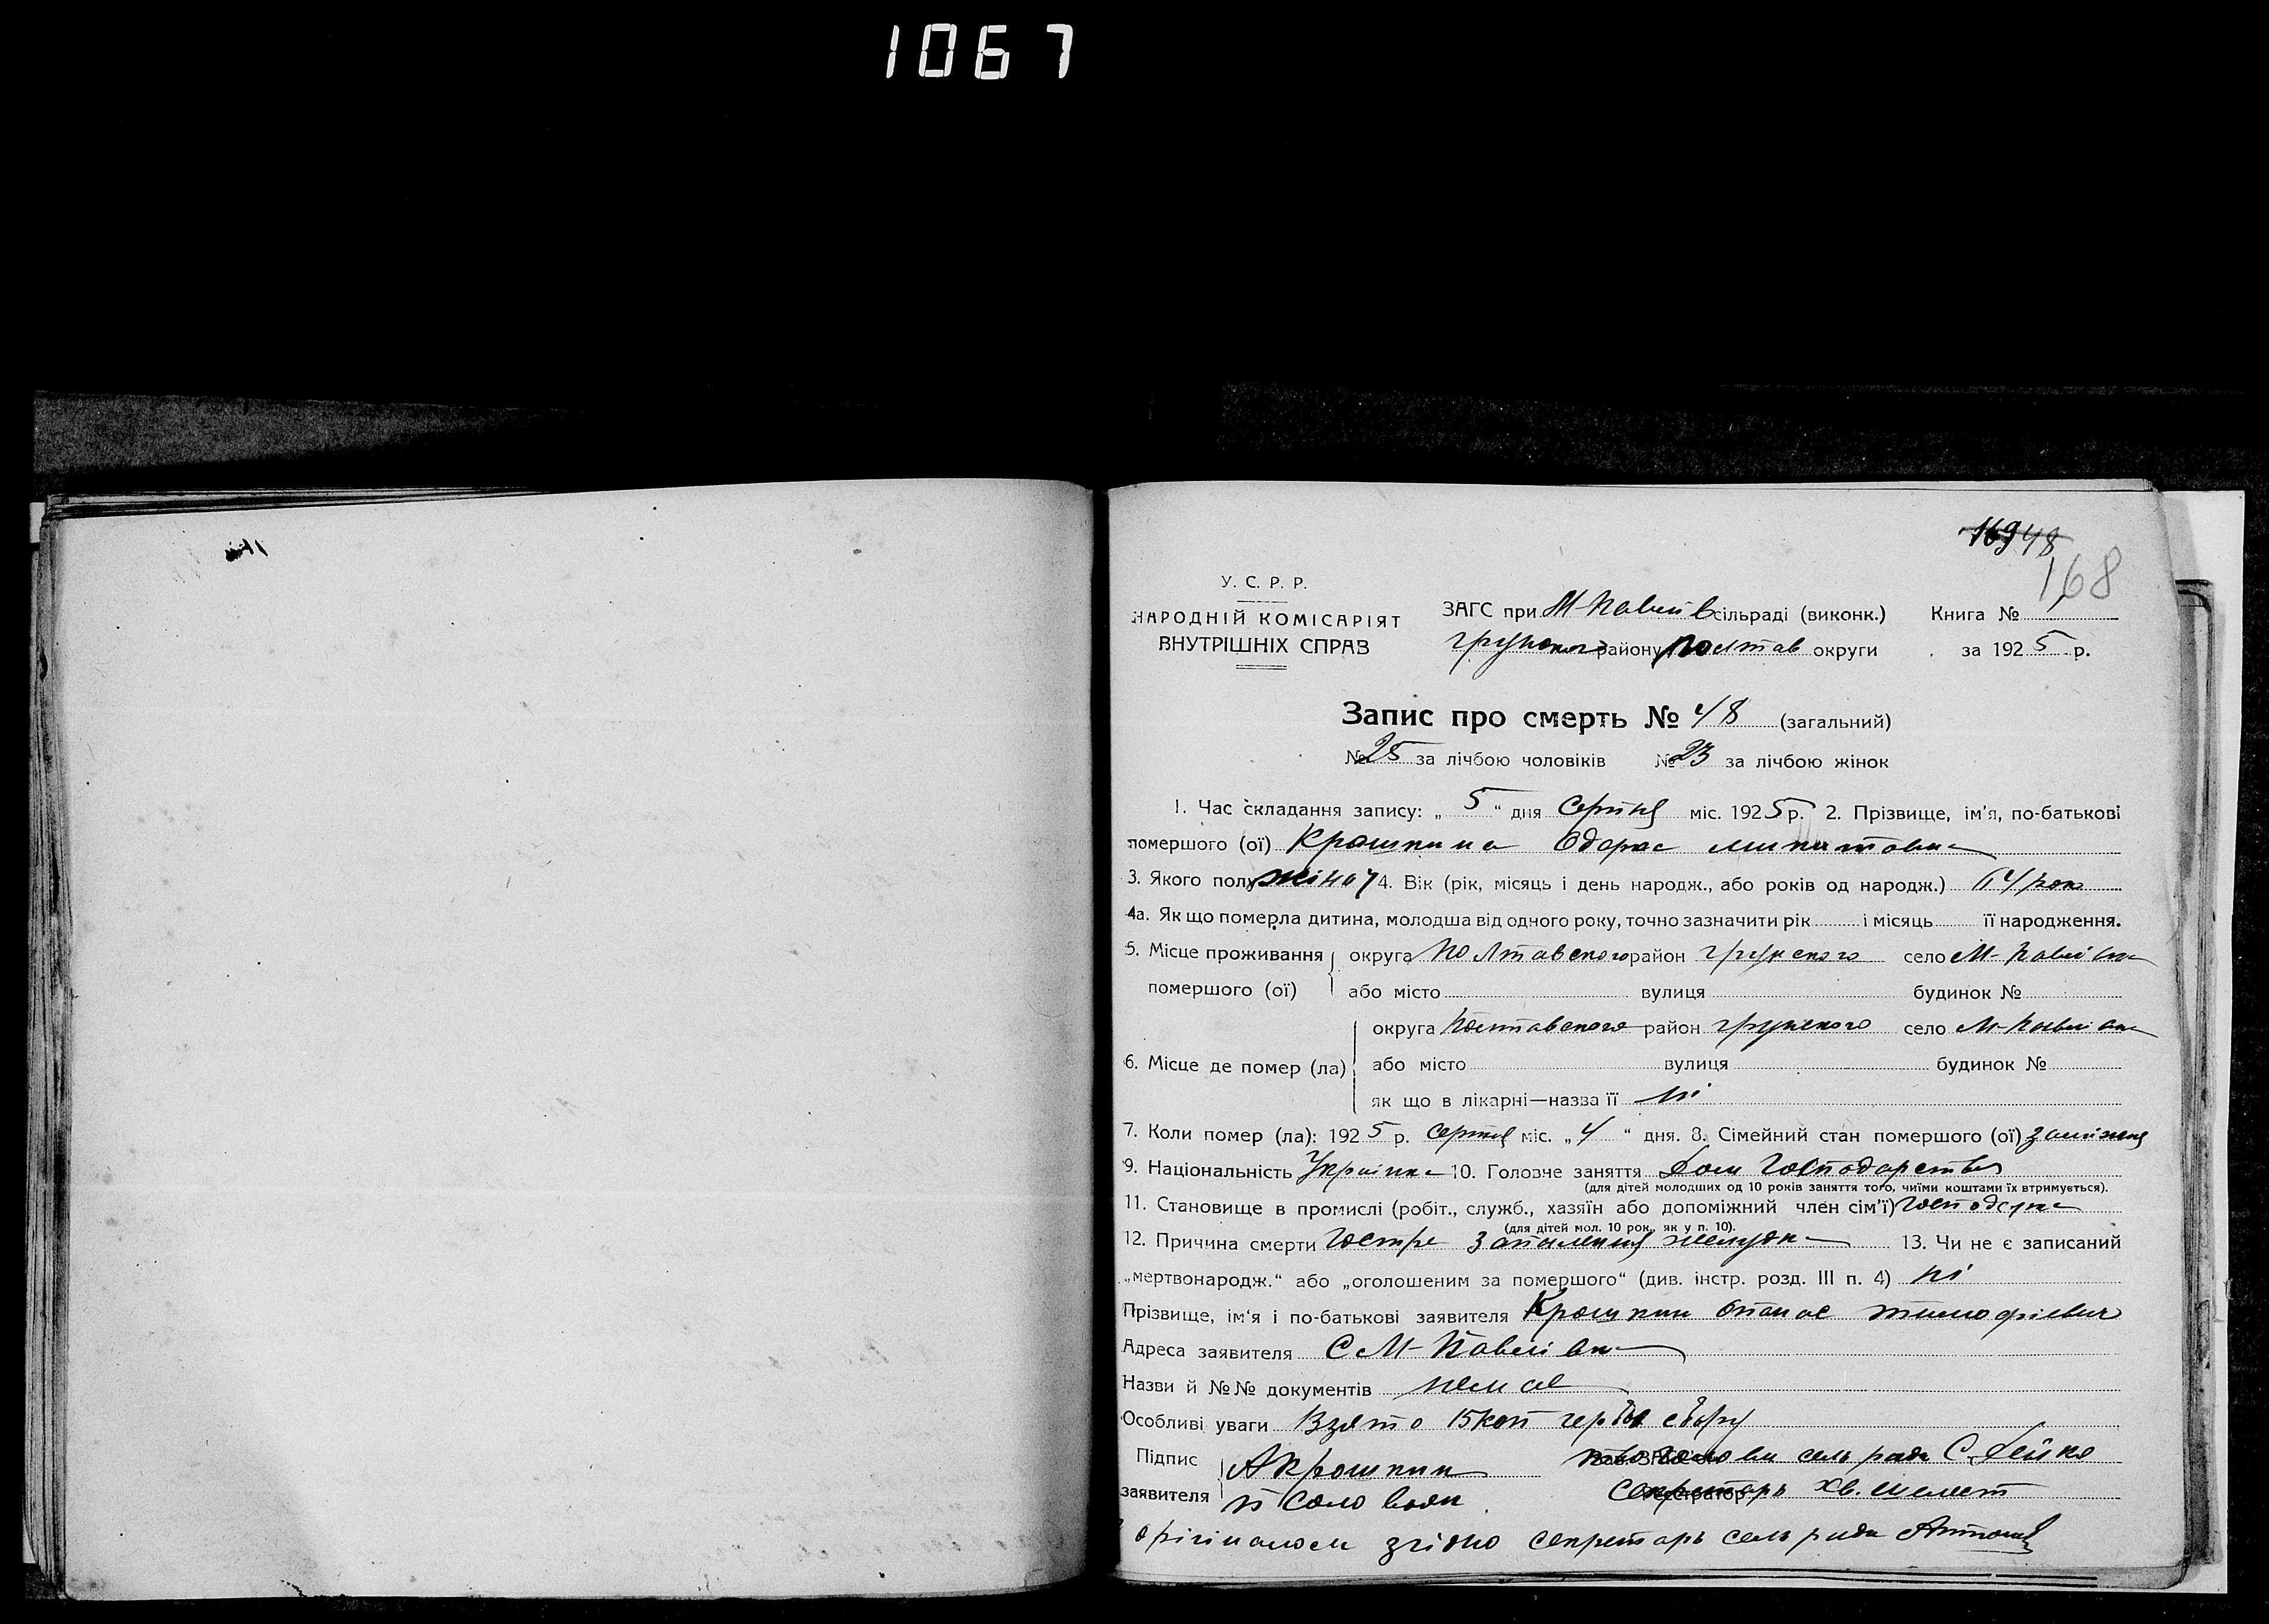 1067
168
У. С. Р. Р.
НАРОДНІЙ КОМІСАРІЯТ
ВНУТРІШНІХ СПРАВ
ЗАГС при М-Павлів сільраді (виконк.) Книга № 1
грунского району Полтав округи за 1925 р.
Запис про смерть № 48 (загальний)
№ 25 за лічбою чоловіків № 23 за лічбою жінок
1. Час складання запису: „ 5 “ дня Серпня міс. 1925 р. 2. Прізвище, ім'я, по-батькові
помершого (ої) Крошкина Одарка
3. Якого полу жіноч 4. Вік (рік, місяць і день народж., або років од народж.)
4а. Як що померла дитина, молодша від одного року, точно зазначити рік і місяць її народження.
5. Місце проживання округа Полтавского район грунского село М-Павлівка
помершого (ої) або місто вулиця будинок №
округа Полтавского район грунского село М-Павлівка
6. Місце де помер (ла) або місто вулиця будинок №
як що в лікарні—назва її ні
7. Коли помер (ла): 1925 р. Серпня міс. „ 4 “ дня. 8. Сімейний стан помершого (ої) заміжня
9. Національність Українка 10. Головне заняття Дом Господарство
(для дітей молодших од 10 років заняття того, чиїми коштами їх втримується).
11. Становище в промислі (робіт., служб., хазяїн або допоміжний член сім'ї) господарка
(для дітей мол. 10 рок., як у п. 10).
12. Причина смерти Гостре запалення желудка 13. Чи не є записаний
„мертвонародж.“ або „оголошеним за помершого“ (див. інстр. розд. III п. 4) ні
Прізвище, ім'я і по-батькові заявителя Крошкин Опанас тимофіевич
Адреса заявителя С М-Павлівка
Назви й №№ документів немае
Особливі уваги Взято 15 коп герб збору
Підпис А Крошкин голови сельради С. Дейко
заявителя Секретарь Хв. шелест
орігіналом згідно секретарь сельради